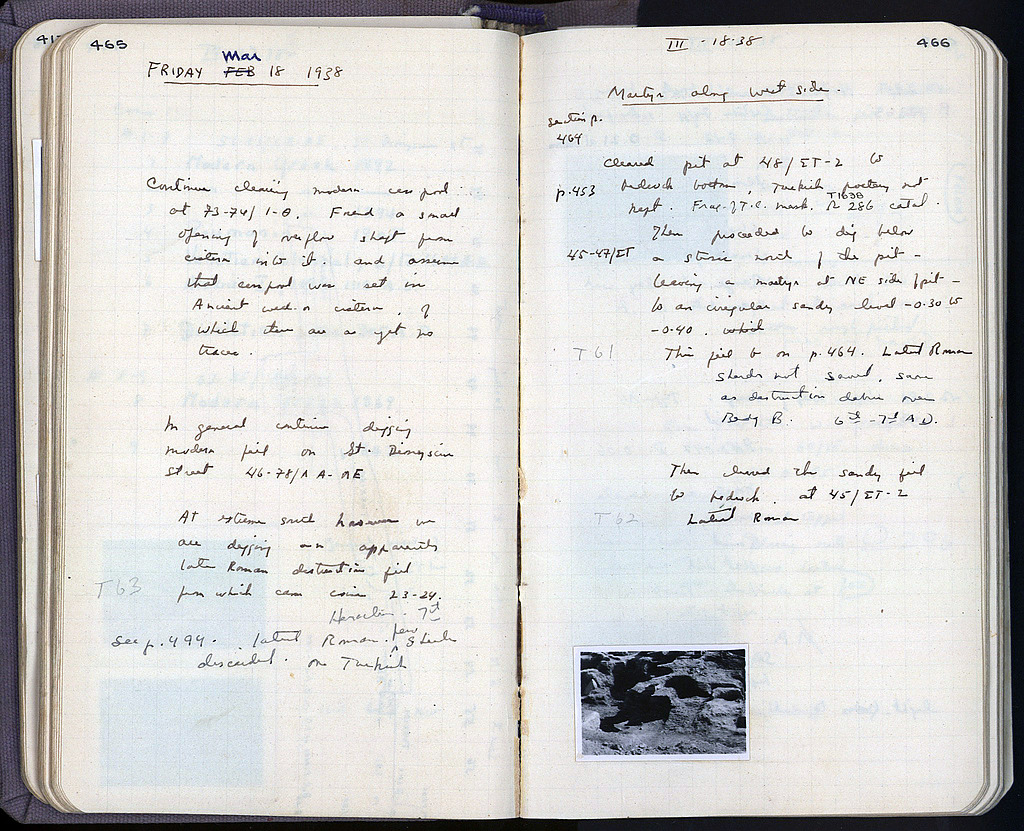 417
465
Mar
FRIDAY FEB 18 1938
Continue clearing modern cess pool
at 73-74/1-Θ. Found a small
opening of overflow shaft from
cistern into it and assume
that cesspool was set in
Ancient well or cistern, of
which there are as yet no
traces.
In general continue digging
modern fill on St. Dionysius
Street 46-78/ΛΑ-ΛΕ
At extreme south however we
are digging an apparently
late Roman destruction fill
T63 from which came coins 23-24.
Heraclius. 7th
See p. 494. latest Roman. few sherds
discarded. no Turkish
III - 18-38
466
Martyr along west side.
section p.
464
Cleared pit at 48/ΣΤ-2 to
p.453 bedrock bottom, Turkish pottery not
kept. Frag. of T.C. mask. T1638 Π 286 catal.
Then proceeded to dig below
45-47/ΣΤ a stosic north of the pit -
leaving a martyr at NE side of pit -
to an irregular sandy level -0.30 to
-0.40. which
T61 This fill b on p. 464. Latest Roman
sherds not saved, same
as destruction debris over
Bedg B. 6th - 7th A.D.
Then cleared the sandy fill
to bedrock. at 45/ΣΤ-2
T62 Latest Roman